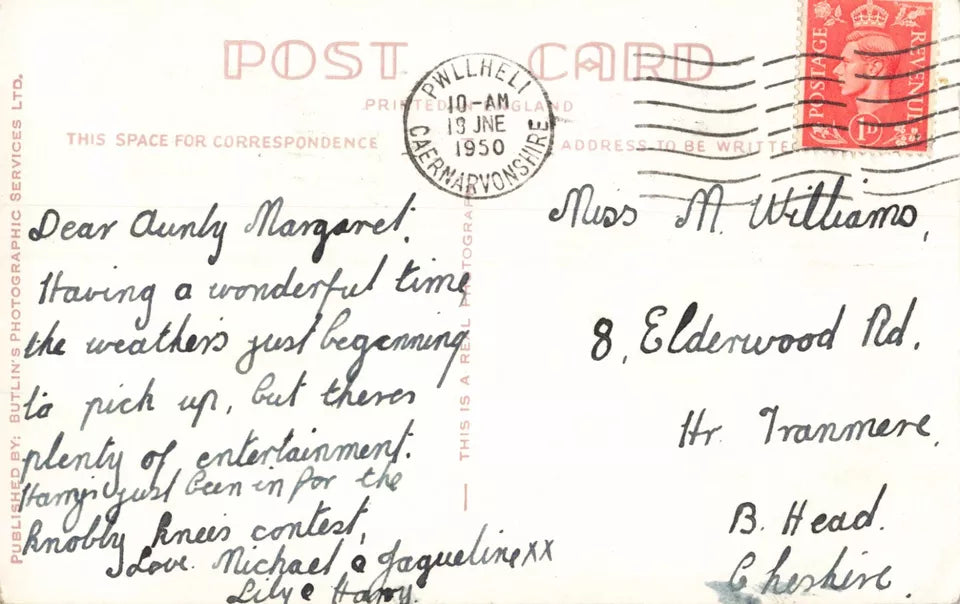 POST CARD
PRINTED IN ENGLAND
THIS SPACE FOR CORRESPONDENCE
ADDRESS TO BE WRITTE
PWLLHELI
10-AM
JNE
1950
CAERNARVONSHIRE
POSTAGE
REVENUE
1D
PUBLISHED BY: BUTLIN'S PHOTOGRAPHIC SERVICES LTD.
THIS IS A REAL PHOTOGRAP
Dear Aunty Margaret.
Having a wonderful time
the weathers just begenning
to pick up, but theres
plenty of entertainment.
Harry's just been in for the
knobbly knees contest,
Love. Michael & Jaqueline xx
Lily & Harry.
Miss M. Williams,
8, Elderwood Rd.
Hr. Tranmere,
B. Head.
Cheshire.